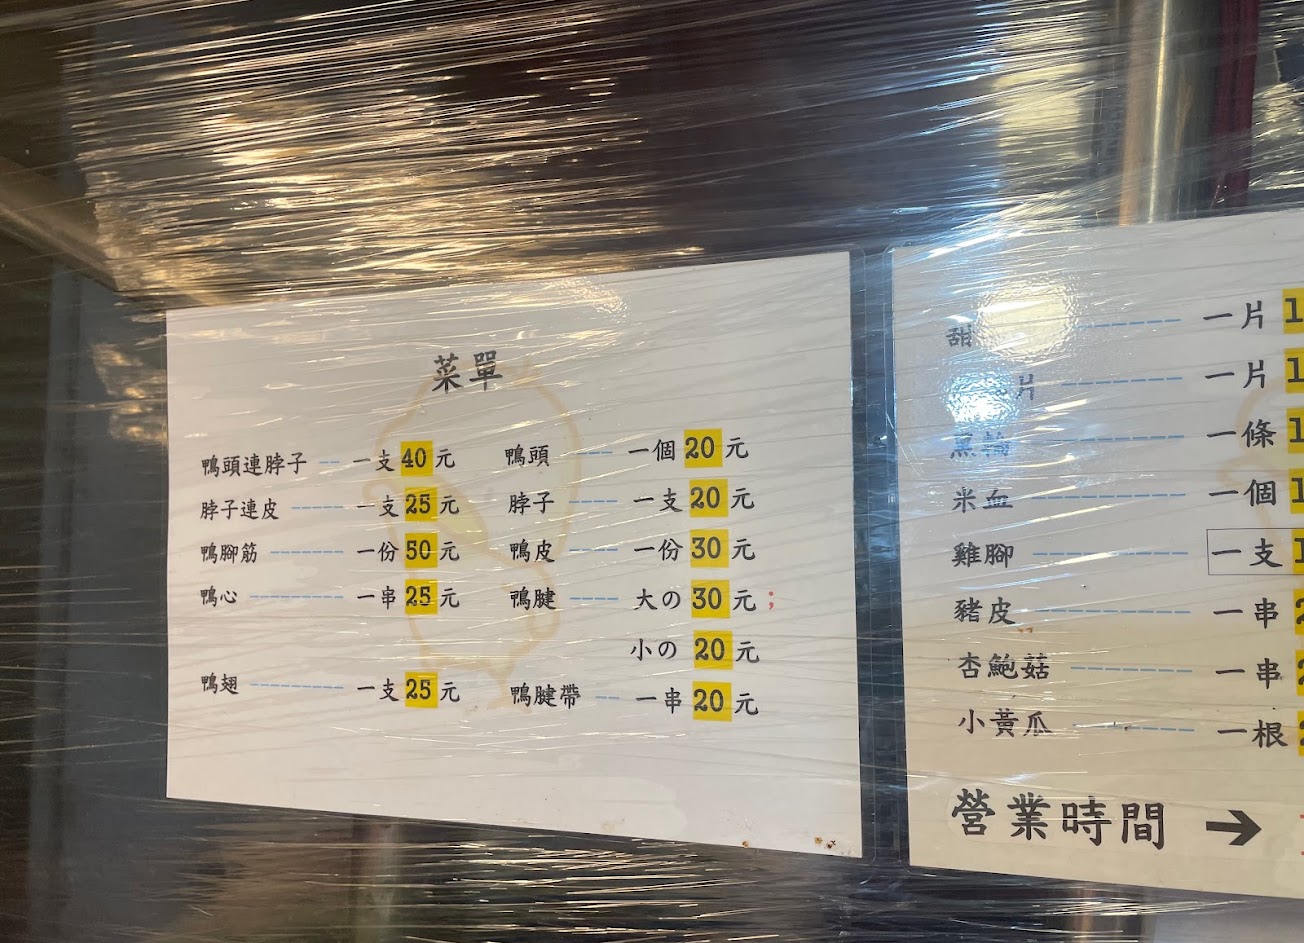 菜單
鴨頭連脖子 一支40元
脖子連皮 一支25元
鴨腳筋 一份50元
鴨心 一串25元
鴨翅 一支25元
鴨頭 一個20元
脖子 一支20元
鴨皮 一份30元
鴨腱 大の30元；
小の20元
鴨腱帶 一串20元
甜 一片1
片 一片1
黑輪 一條1
米血 一個1
雞腳 一支1
豬皮 一串2
杏鮑菇 一串2
小黃瓜 一根2
營業時間 →